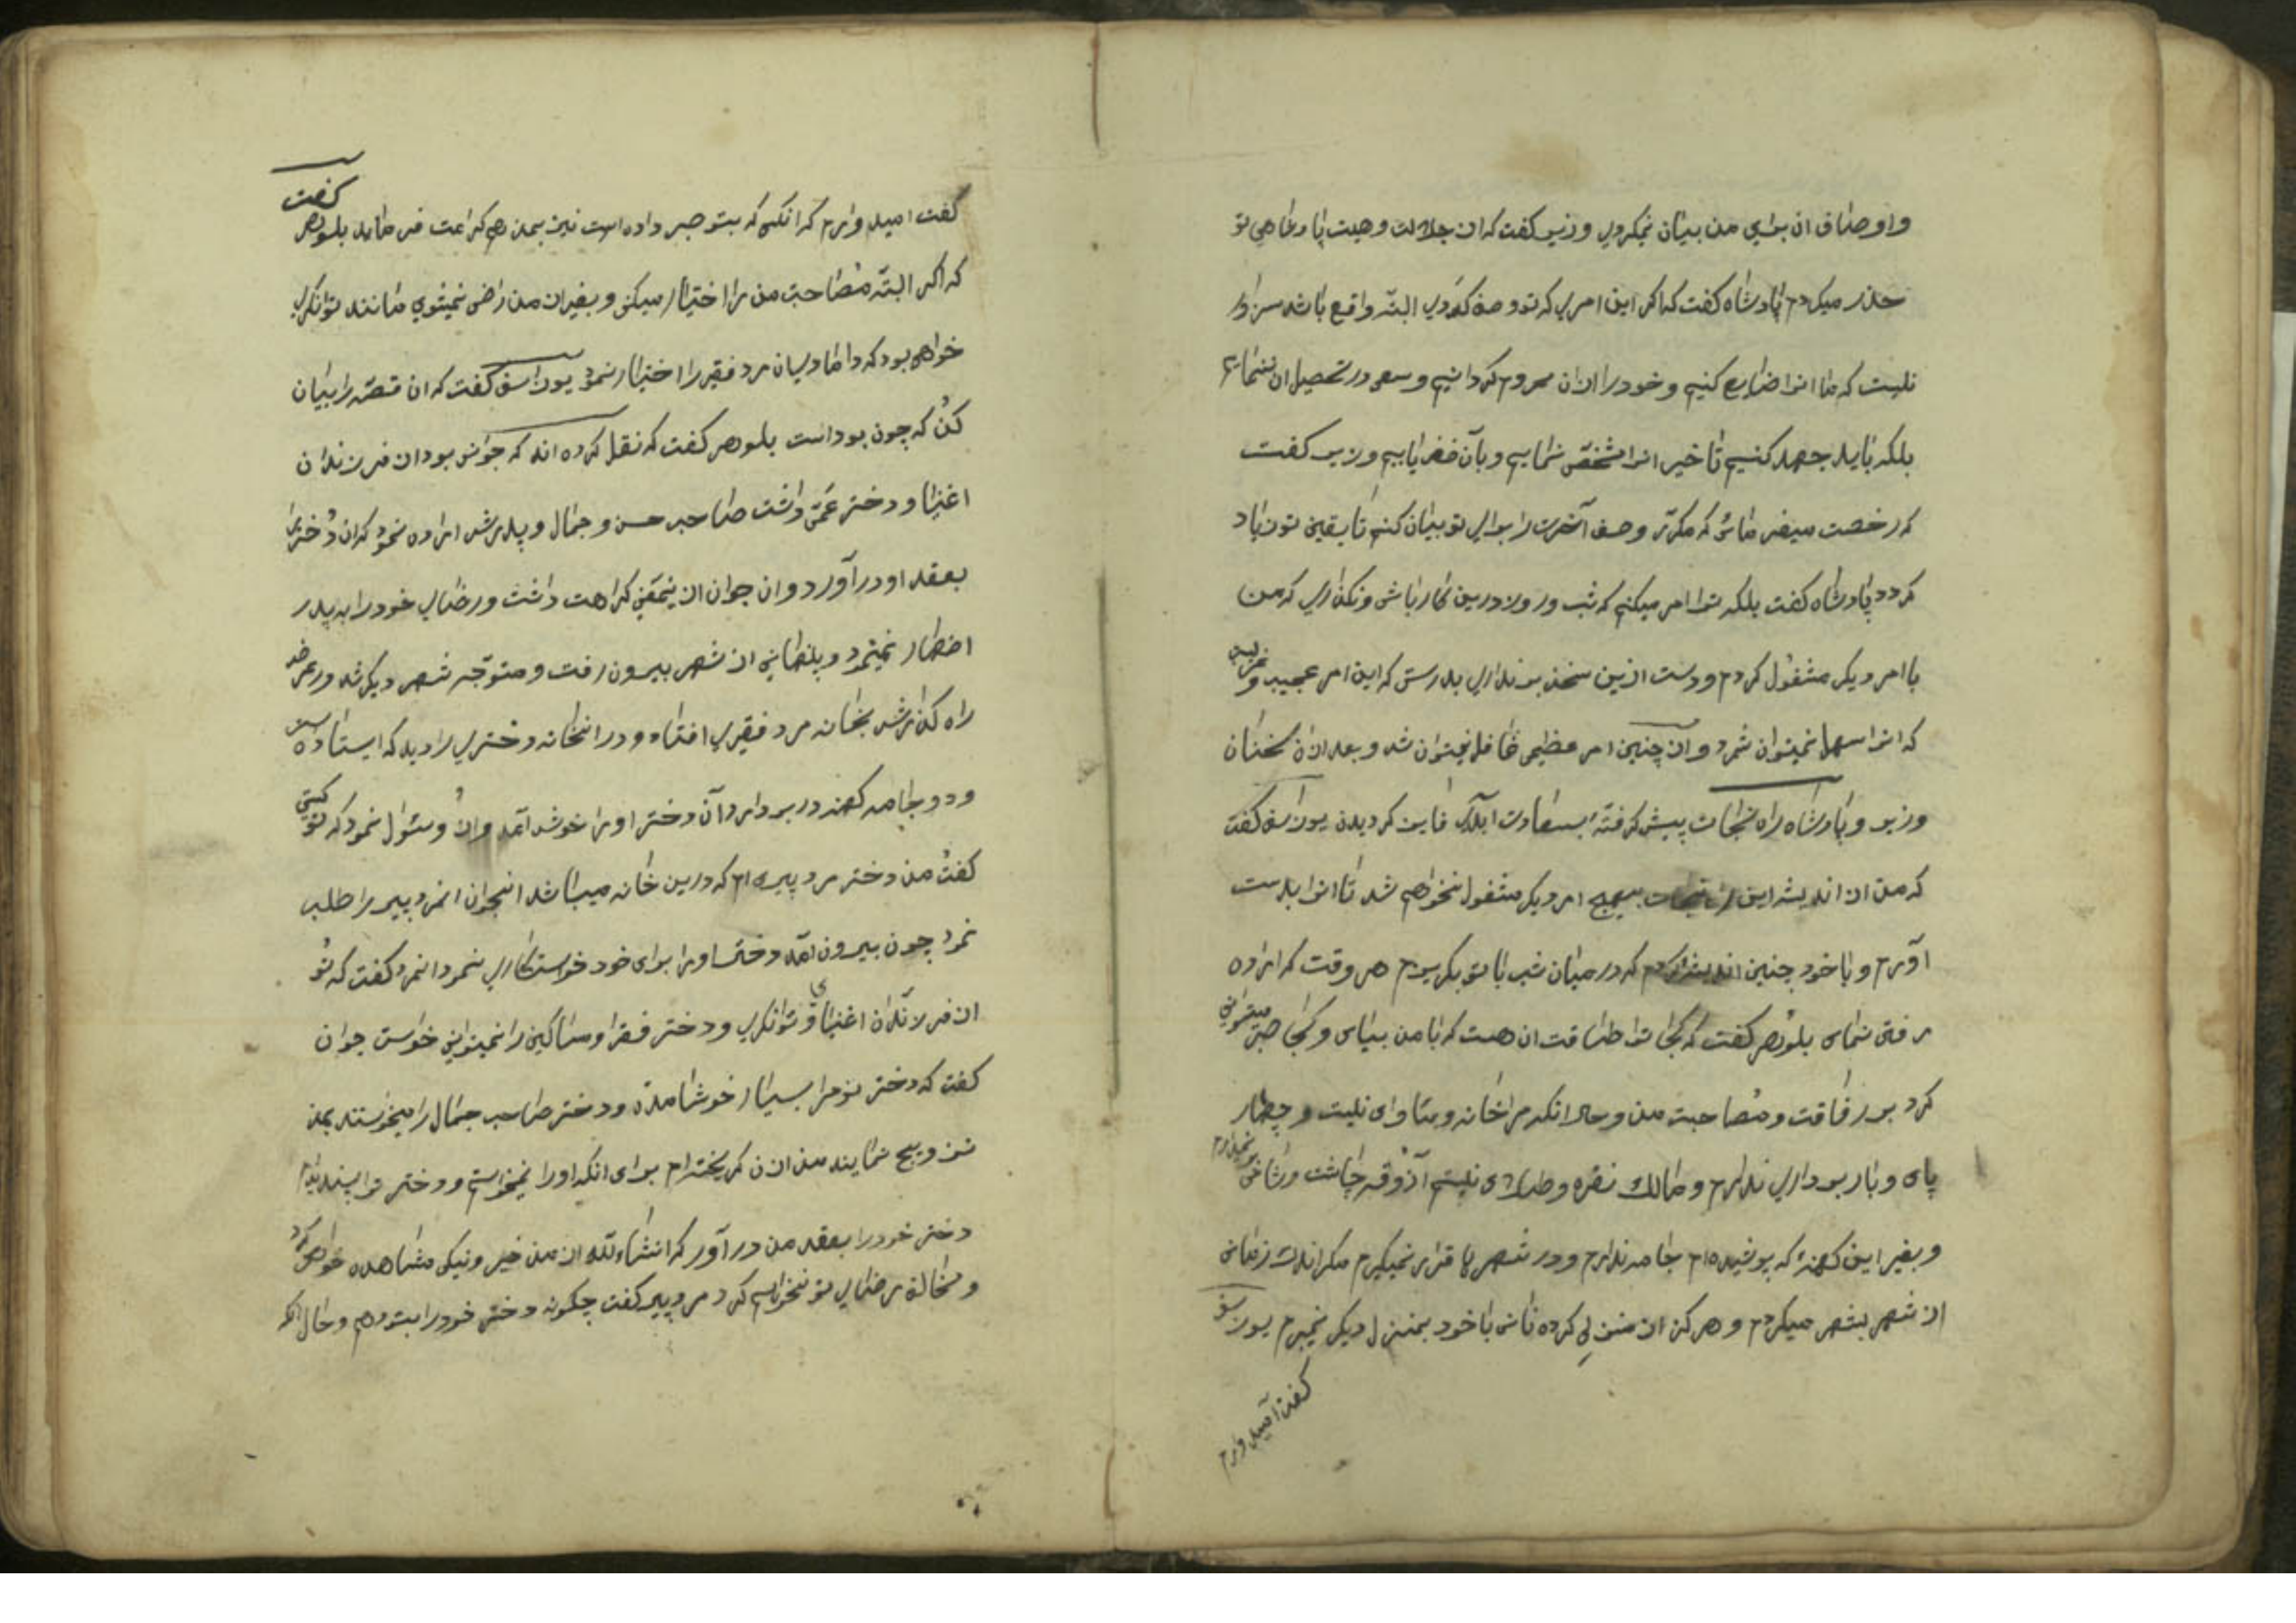 و اوصاف ان برای من بیان نمیکردی وزیر کفت که از جلالت و هیبت پادشاهی تو
حذر میکردم پادشاه کفت که اکر این امری که تو وصف کردی البته واقع باشد سزاوار
نیست که ما انرا ضایع کنیم و خود را از ان محروم کردانیم و سعی در تحصیل ان ننمائیم
بلکه باید جهد کنیم تا خبر انرا مشخص نمائیم و بآن ظفر یابیم وزیر کفت
که رخصت میفرمائی که مکرّر وصف آخرت را برای تو بیان کنم تا یقین تو زیاد
کردد پادشاه کفت بلکه ترا امر میکنم که شب و روز درین کار باش و نکذاری که من
با امر دیکر مشغول کردم و دست ازین سخن بر نداری بدرستی که این امر عجیب و غریبی
که انرا سهل نمیتوان شمرد و از چنین امر عظیمی غافل نمیتوان شد و بعد از ان سخنان
وزیر و پادشاه راه نجات پیش کرفته بسعادت ابدی فایز کردیدن یوزاسف کفت
که من از اندیشه این راه نجات بهیچ امر دیکر مشغول نخواهم شد تا انرا بدست
آورم و با خود چنین اندیشه کردم که در میان شب با تو بکریزم هر وقت که اراده
رفتن نمای بلوهر کفت که کجا ترا طاقت ان هست که با من بیای و کجا صبر میتوانی
کرد بر رفاقت و مصاحبت من و حال انکه مرا خانه و ماوای نیست و چهار
پای و بار برداری ندارم و مالک نقره و طلای نیستم آذوقه چاشت و شام بر نمیدارم
و بغیر این کهنهٔ که پوشیده ام جامه ندارم و در شهرها قرار نمیکیرم مکر اندک زمانی
از شهر بشهر میکردم و هرکز از منزلی کرده نانی با خود بمنزل دیکر نمیبرم یوزاسف
کفت امیدوارم
کفت امیدوارم که انکسی که بتو صبر داده است نیز بمن هم کرامت فرماید بلوهر کفت
که اکر البتّه مصاحبت من را اختیار میکنی و بغیر از من راضی نمیشوی مانند توانکری
خواهی بود که دامادی ان مرد فقیر را اختیار نمود یوزاسف کفت که ان قصّه را بیان
کن که چون بود است بلوهر کفت که نقل کرده اند که جوانی بود از فرزندان
اغنیا و دختر عمّی داشت صاحب حسن و جمال و پدرش اراده نمود که ان دختر را
بعقد او درآورد و ان جوان از این معنی کراهت داشت و رضای خود را به پدر
اظهار نمینمود و پنهانی از شهر بیرون رفت و متوجّه شهر دیکر شد و در عرض
راه کذارش بخانه مرد فقیری افتاد و در انخانه دختری را دید که ایستاده است
و دو جامه کهنه در بر دارد آن دختر او را خوش آمد و از او سئوال نمود که تو کیستی
کفت من دختر مرد پیری ام که درین خانه میباشد انجوان انمرد پیر را طلب
نمود چون بیرون آمد دختر او را برای خود خواستکاری نمود انمرد کفت که تو
از فرزندان اغنیای و توانکری و دختر فقرا و مساکین را نمیتوانی خواست جوان
کفت که دختر تو مرا بسیار خوش آمده و دختر صاحب جمال را میخواستند بمن
تزویج نمایند من از ان کریخته ام برای انکه او را نمیخواستم و دختر ترا پسندیدم
دختر خود را بعقد من درآور که انشاءلله از من خیر و نیکی مشاهده خواهی کرد
و مخالفة رضای تو نخواهم کرد مرد پیر کفت چکونه دختر خود را بتو دهم و حال انکه